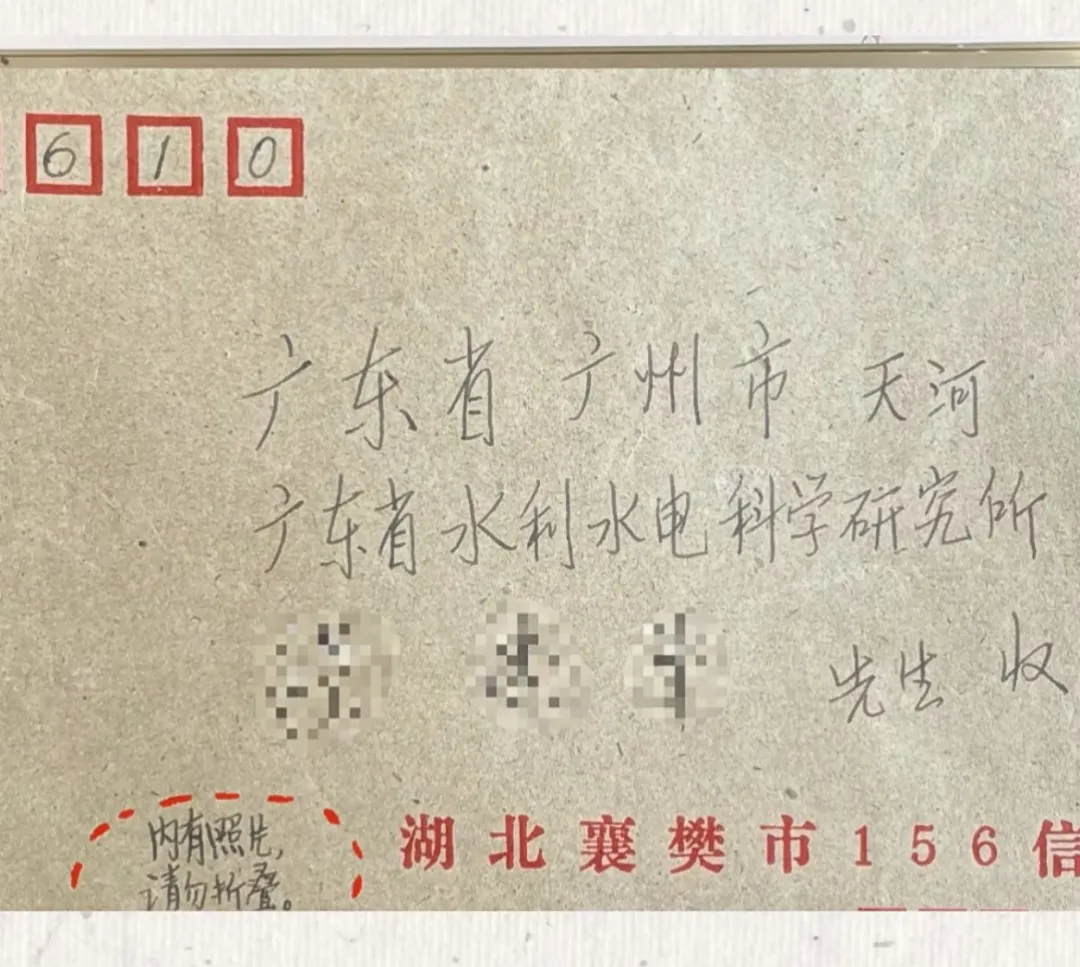 610
广东省广州市天河
广东省水利水电科学研究所
先生 收
内有照片,
请勿折叠。
湖北襄樊市156信